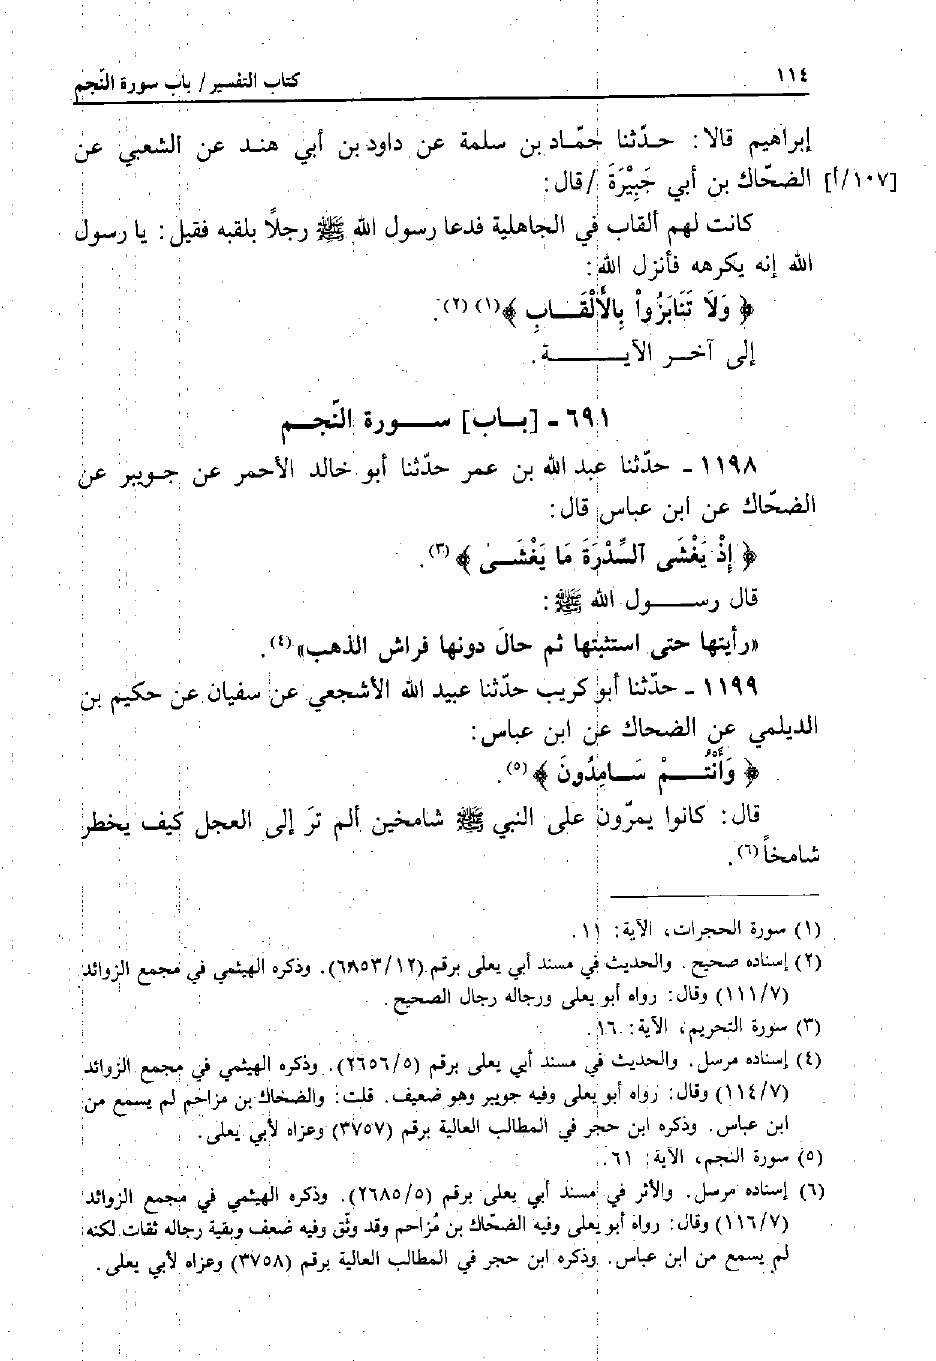 ١١٤
كتاب التفسير / باب سورة النّجم
إبراهيم قالا: حدّثنا حمّاد بن سلمة عن داود بن أبي هند عن الشعبي عن
[١٠٧/أ] الضحّاك بن أبي جَبِيْرَةَ / قال:
كانت لهم ألقاب في الجاهلية فدعا رسول الله ﷺ رجلاً بلقبه فقيل: يا رسول
الله إنه يكرهه فأنزل الله:
﴿ وَلَا تَنَابَزُواْ بِالْأَلْقَابِ ﴾(١) (٢).
إلى آخر الآية.
٦٩١ - [باب] سورة النّجم
١١٩٨ - حدّثنا عبد الله بن عمر حدّثنا أبو خالد الأحمر عن جويبر عن
الضحّاك عن ابن عباس قال:
﴿ إِذْ يَغْشَى ٱلسِّدْرَةَ مَا يَغْشَىٰ ﴾(٣).
قال رسول الله ﷺ:
«رأيتها حتى استثبتها ثم حالَ دونها فراش الذهب»(٤).
١١٩٩ - حدّثنا أبو كريب حدّثنا عبيد الله الأشجعي عن سفيان عن حكيم بن
الديلمي عن الضحاك عن ابن عباس:
﴿ وَأَنْتُمْ سَامِدُونَ ﴾(٥).
قال: كانوا يمرّون على النبي ﷺ شامخين ألم ترَ إلى العجل كيف يخطر
شامخاً(٦).
(١) سورة الحجرات، الآية: ١١.
(٢) إسناده صحيح. والحديث في مسند أبي يعلى برقم (٦٨٥٣/١٢). وذكره الهيثمي في مجمع الزوائد
(١١١/٧) وقال: رواه أبو يعلى ورجاله رجال الصحيح.
(٣) سورة التحريم، الآية: ١٦.
(٤) إسناده مرسل. والحديث في مسند أبي يعلى برقم (٢٦٥٦/٥). وذكره الهيثمي في مجمع الزوائد
(١١٤/٧) وقال: رواه أبو يعلى وفيه جويبر وهو ضعيف. قلت: والضحاك بن مزاحم لم يسمع من
ابن عباس. وذكره ابن حجر في المطالب العالية برقم (٣٧٥٧) وعزاه لأبي يعلى.
(٥) سورة النجم، الآية: ٦١.
(٦) إسناده مرسل. والأثر في مسند أبي يعلى برقم (٢٦٨٥/٥). وذكره الهيثمي في مجمع الزوائد
(١١٦/٧) وقال: رواه أبو يعلى وفيه الضحّاك بن مُزاحم وقد وثّق وفيه ضعف وبقية رجاله ثقات لكنه
لم يسمع من ابن عباس. وذكره ابن حجر في المطالب العالية برقم (٣٧٥٨) وعزاه لأبي يعلى.